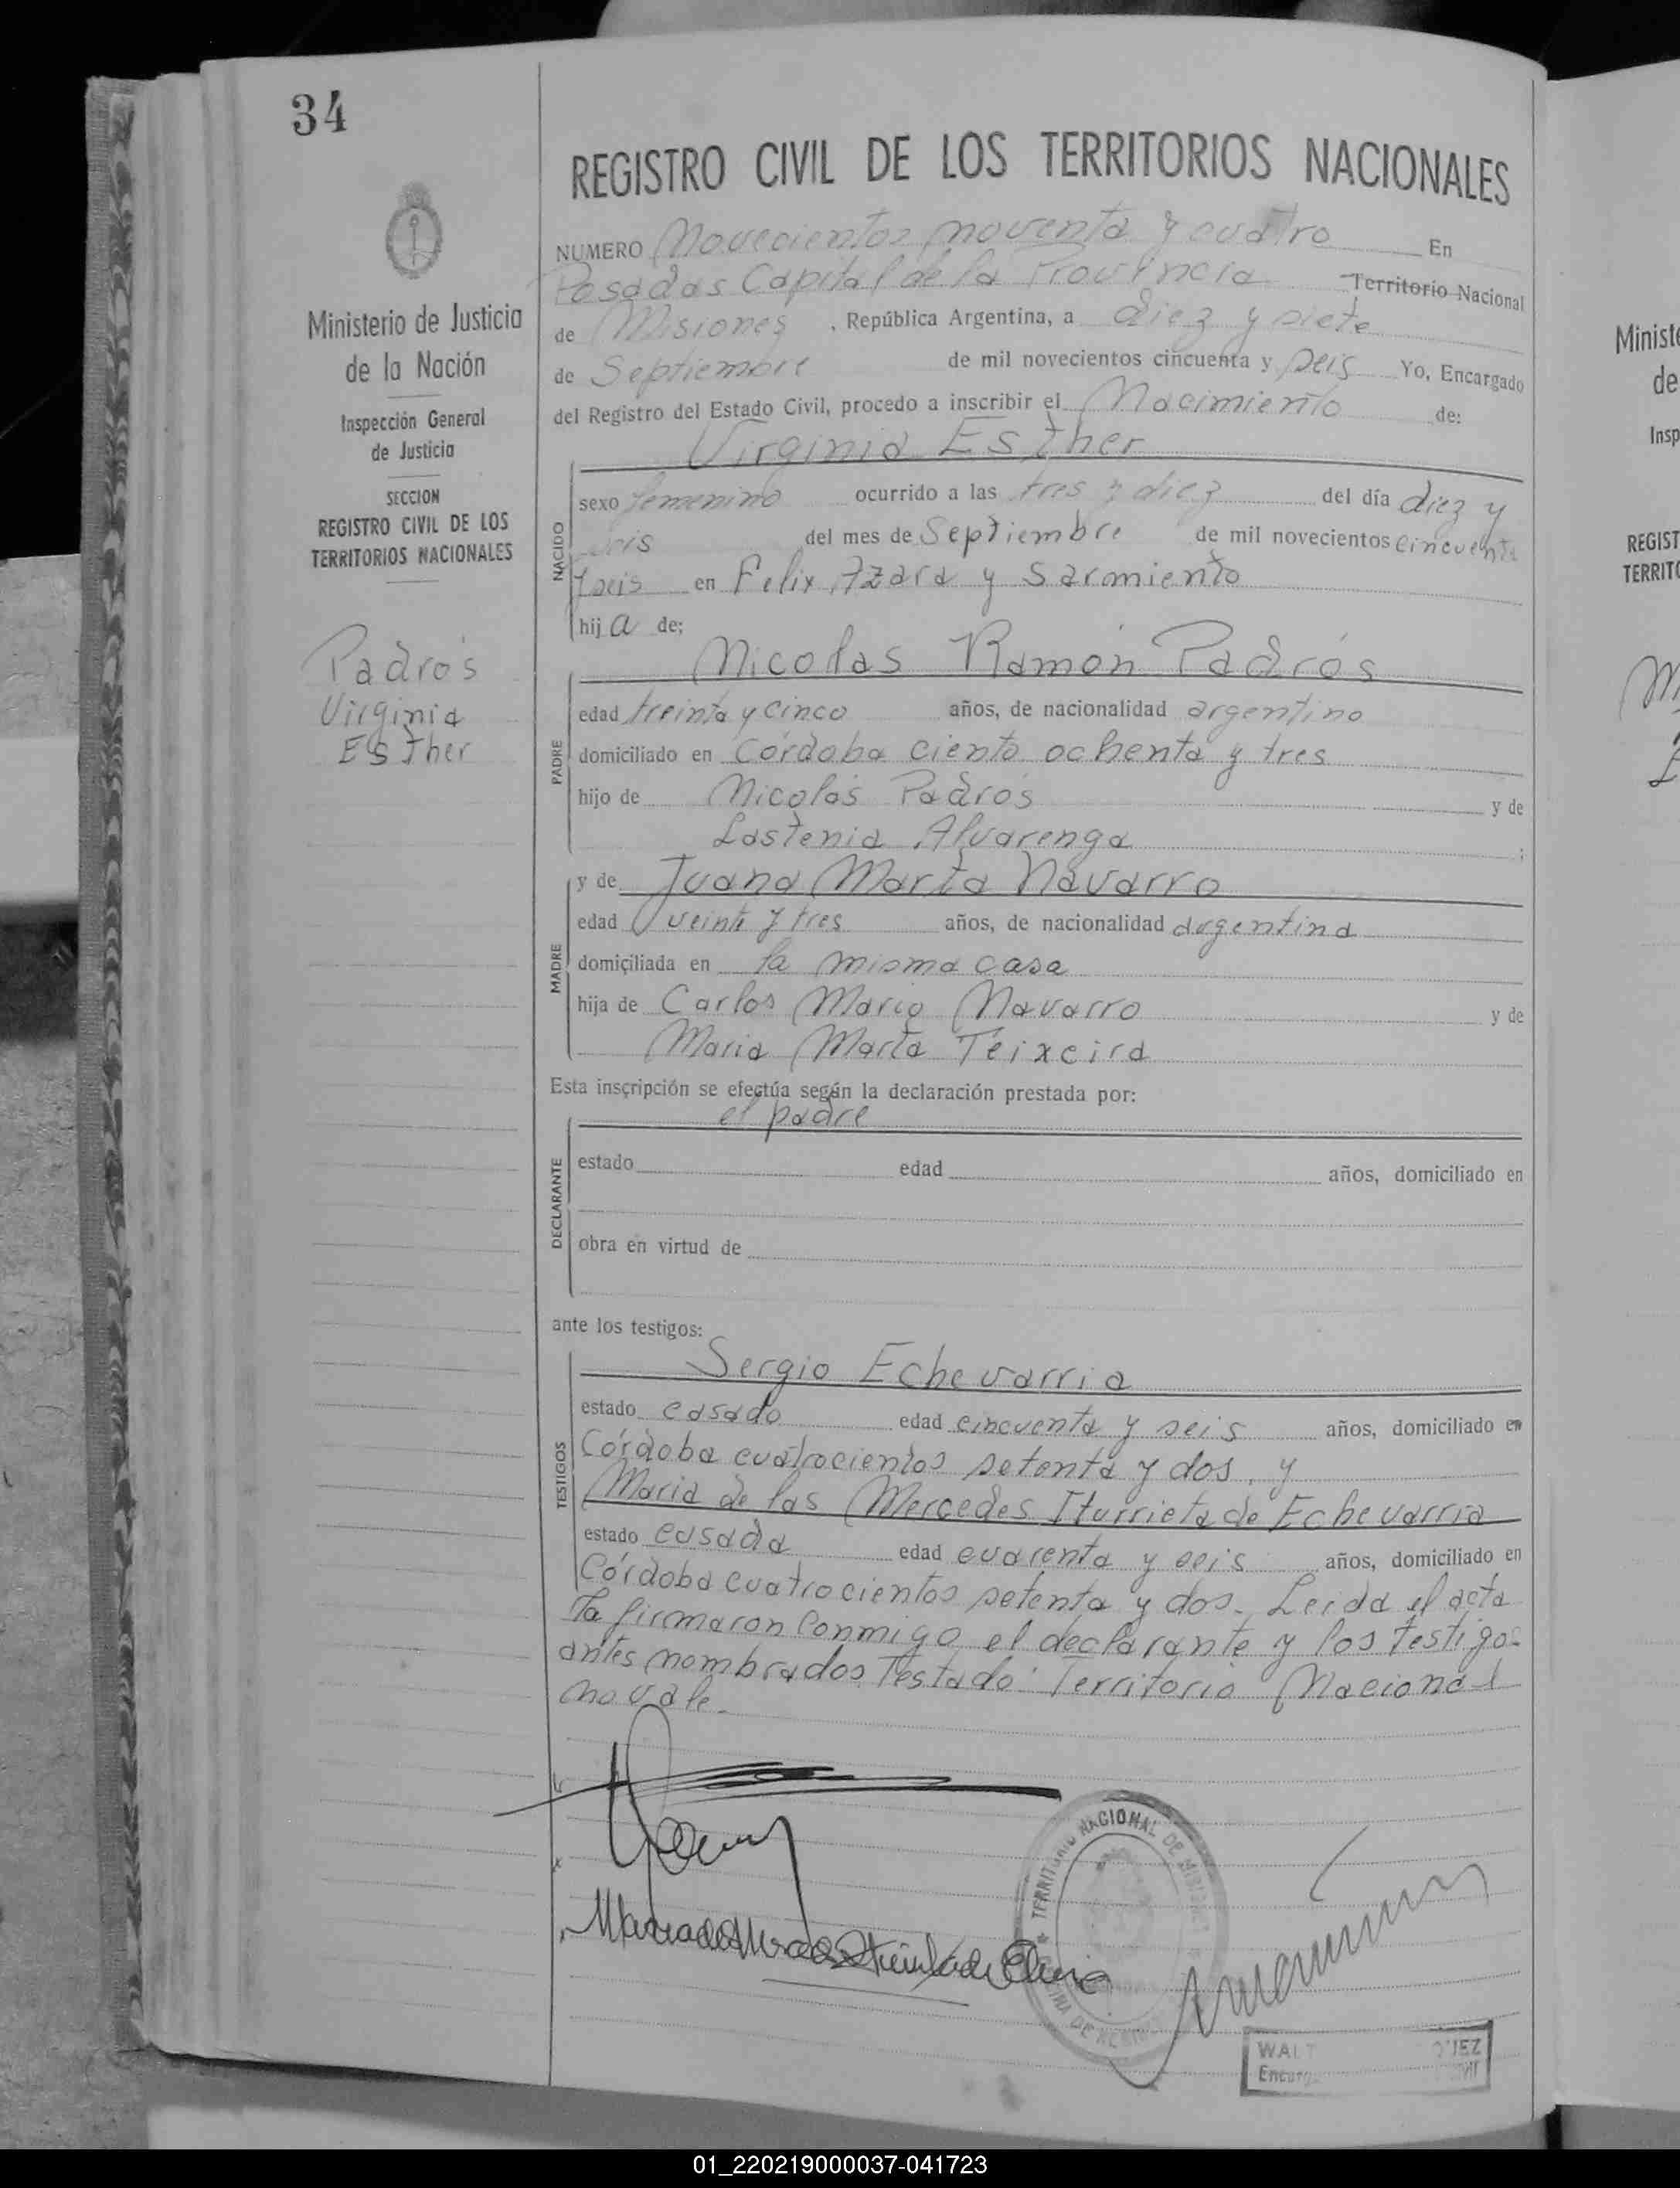 34
REGISTRO CIVIL DE LOS TERRITORIOS NACIONALES
NUMERO Novecientos noventa y cuatro En
Posadas Capital de la Provincia Territorio Nacional
de Misiones, República Argentina, a diez y siete
de Septiembre de mil novecientos cincuenta y seis Yo, Encargado
del Registro del Estado Civil, procedo a inscribir el Nacimiento de:
Virginia Esther
NACIDO
sexo femenino ocurrido a las tres y diez del día diez y
seis del mes de Septiembre de mil novecientos cincuenta
y seis en Felix Azara y Sarmiento
hij a de;
Nicolas Ramón Padrós
PADRE
edad treinta y cinco años, de nacionalidad argentino
domiciliado en Córdoba ciento ochenta y tres
hijo de Nicolás Padrós y de
Lastenia Alvarenga ;
MADRE
y de Juana Marta Navarro
edad veinte y tres años, de nacionalidad argentina
domiciliada en la misma casa
hija de Carlos Mario Navarro y de
Maria Marta Teixeira
Esta inscripción se efectúa según la declaración prestada por:
el padre
DECLARANTE
estado edad años, domiciliado en
obra en virtud de
ante los testigos:
TESTIGOS
Sergio Echevarria
estado casado edad cincuenta y seis años, domiciliado en
Córdoba cuatrocientos setenta y dos, y
Maria de las Mercedes Iturrieta de Echevarria
estado casada edad cuarenta y seis años, domiciliado en
Córdoba cuatrocientos setenta y dos. Leida el acta
la firmaron conmigo el declarante y los testigos
antes nombrados. Testado: Territorio Nacional
no vale.
TERRITORIO NACIONAL DE MISIONES
WALT
Encarg
Ministerio de Justicia
de la Nación
Inspección General
de Justicia
SECCION
REGISTRO CIVIL DE LOS
TERRITORIOS NACIONALES
Padrós
Virginia
Esther
Ministe
de
Insp
REGIST
TERRITO
01_220219000037-041723